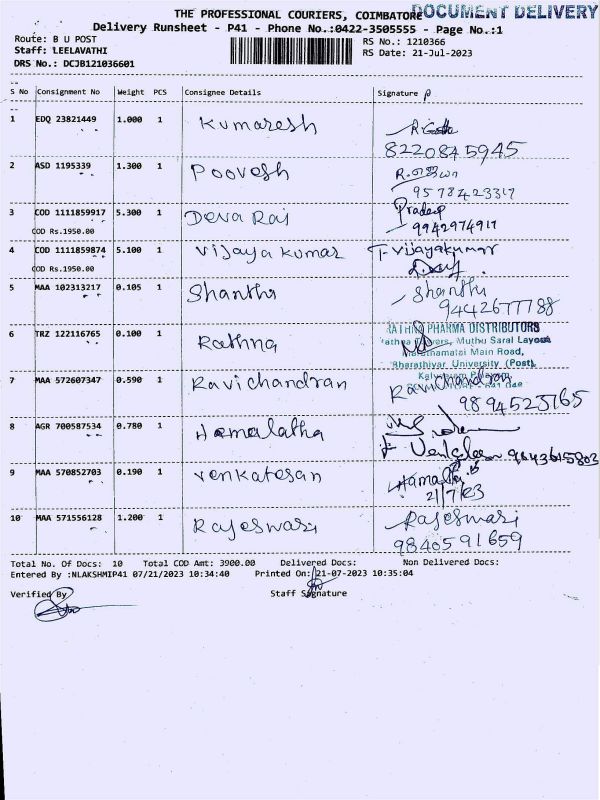 THE PROFESSIONAL COURIERS, COIMBATORE
DOCUMENT DELIVERY
Delivery Runsheet - P41 - Phone No.:0422-3505555 - Page No.:1
Route: B U POST
RS No.: 1210366
Staff: LEELAVATHI
RS Date: 21-Jul-2023
DRS No.: DCJB121036601
S No Consignment No Weight PCS Consignee Details Signature
1 EDQ 23821449 1.000 1 Kumaresh
8220845945
2 ASD 1195339 1.300 1 Poovesh
9578423317
3 COD 1111859917 5.300 1 Deva Raj Pradeep
COD Rs.1950.00 9942974917
4 COD 1111859874 5.100 1 Vijaya Kumar T-Vijayakumar
COD Rs.1950.00
5 MAA 102313217 0.105 1 Shanthi Shanthi
9442677788
6 TRZ 122116765 0.100 1 Rathna
RATHNA PHARMA DISTRIBUTORS
Muthu Saral Layout
Main Road,
Bharathiyar University (Post),
7 MAA 572607347 0.590 1 Ravichandran Ravichandran
9894523765
8 AGR 700587534 0.780 1 Hemalatha
9843615803
9 MAA 570852703 0.190 1 Venkatesan
21/7/23
10 MAA 571556128 1.200 1 Rajeswari Rajeswari
9840591659
Total No. Of Docs: 10 Total COD Amt: 3900.00 Delivered Docs: Non Delivered Docs:
Entered By :NLAKSHMIP41 07/21/2023 10:34:40 Printed On: 21-07-2023 10:35:04
Verified By Staff Signature